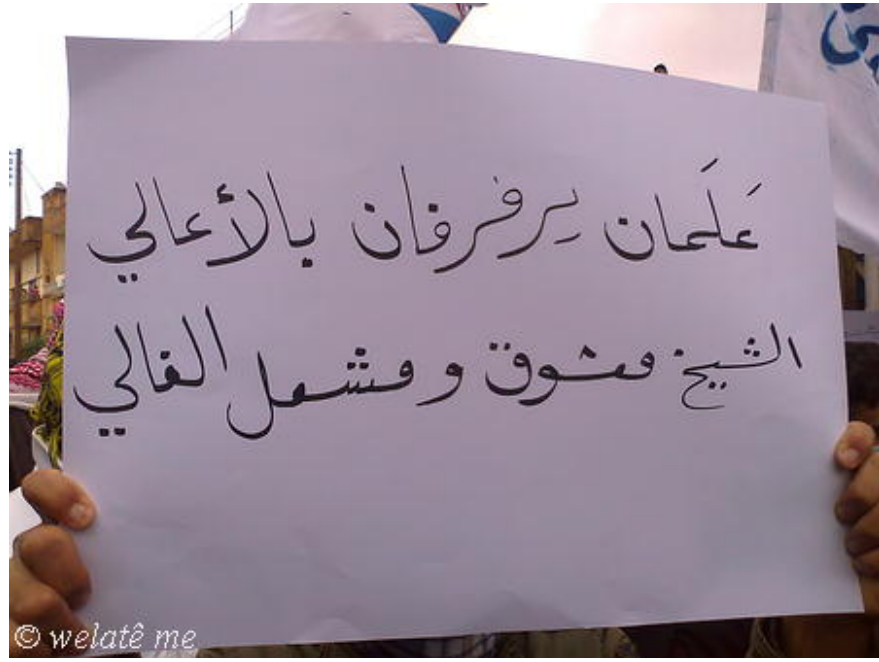 عَلَمان يرفرفان بالأعالي
الشيخ معشوق و مشعل الغالي
© welatê me